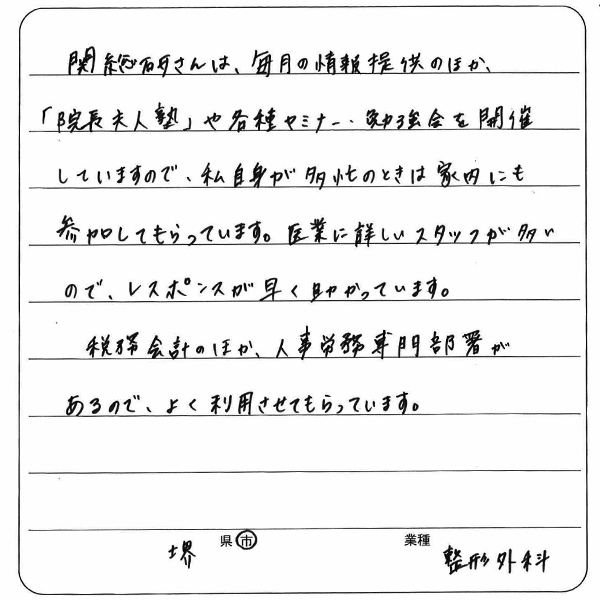 関総研さんは、毎月の情報提供のほか、
「院長夫人塾」や各種セミナー・勉強会を開催
していますので、私自身が多忙のときは家内にも
参加してもらっています。医業に詳しいスタッフが多い
ので、レスポンスが早く助かっています。
税務会計のほか、人事労務専門部署が
あるので、よく利用させてもらっています。
堺 県 市 業種 整形外科